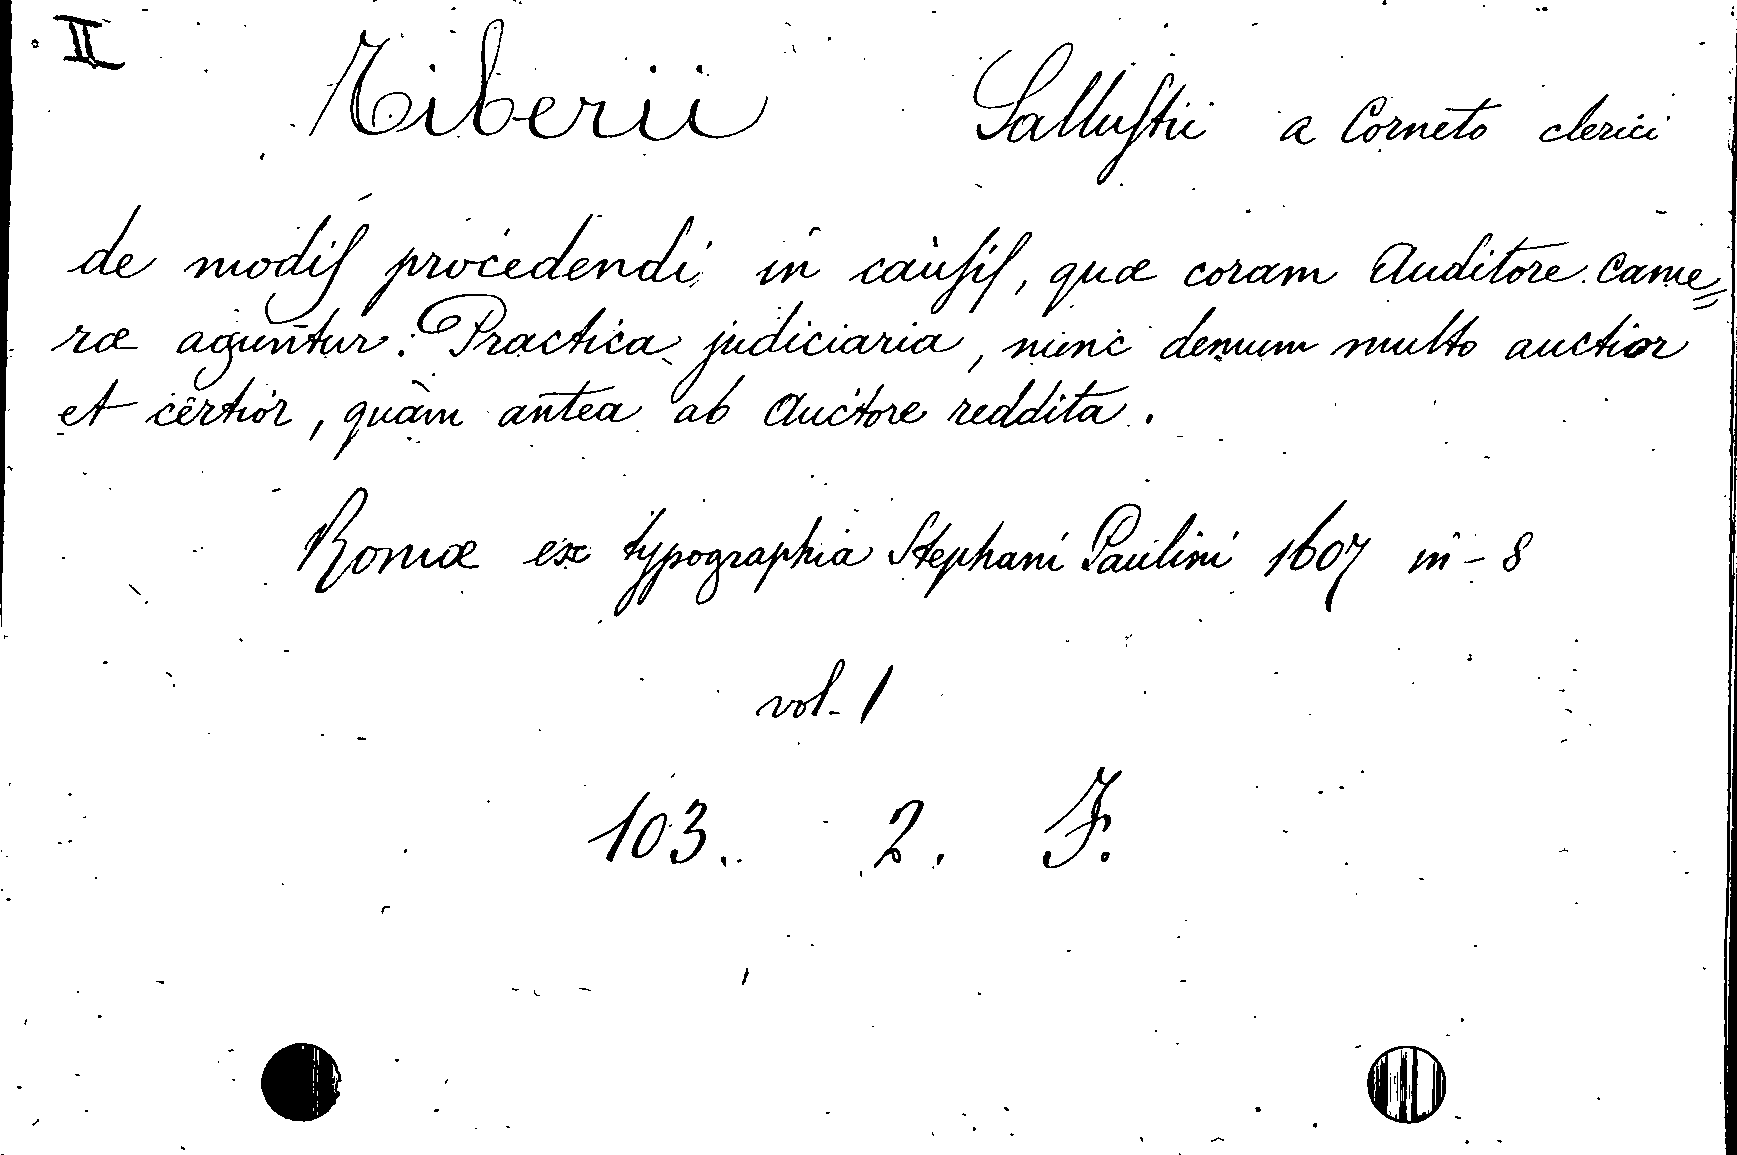 II
Tiberii Sallustii a Corneto clerici
de modis procedendi in causis, quæ coram Auditore Came=
ræ aguntur. Practica judiciaria, nunc demum multo auctior
et certior, quàm antea ab Auctore reddita.
Romæ ex typographia Stephani Paulini 1607 in-8
vol. 1
103. 2. F.